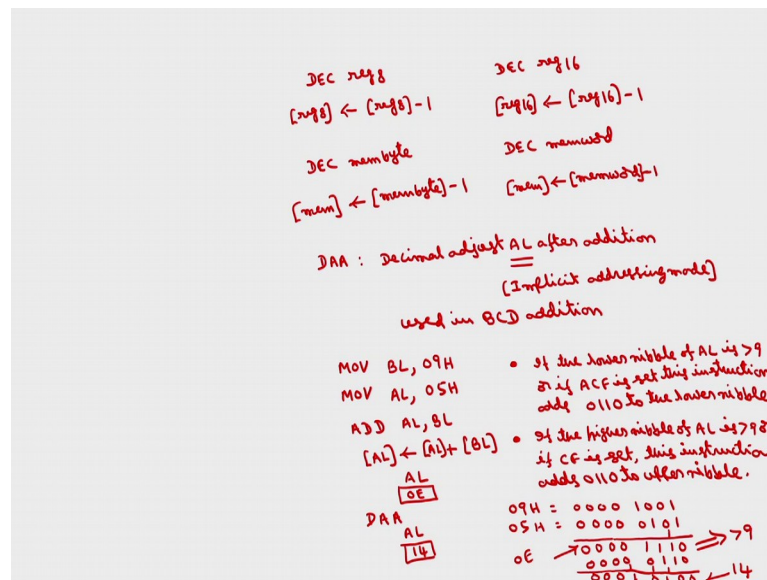 DEC reg8 DEC reg16
[reg8] ← [reg8]-1 [reg16] ← [reg16]-1
DEC membyte DEC memword
[mem] ← [membyte]-1 [mem] ← [memword]-1
DAA : Decimal adjust AL after addition
[Implicit addressing mode]
used in BCD addition
MOV BL, 09H
MOV AL, 05H
ADD AL, BL
[AL] ← [AL]+ [BL]
AL
0E
DAA
AL
14
• If the lower nibble of AL is >9
or if ACF is set this instruction
adds 0110 to the lower nibble
• If the higher nibble of AL is >9 or
if CF is set, this instruction
adds 0110 to upper nibble.
09H = 0000 1001
05H = 0000 0101
0E → 0000 1110 => >9
0000 0110
0001 0100 ← 14